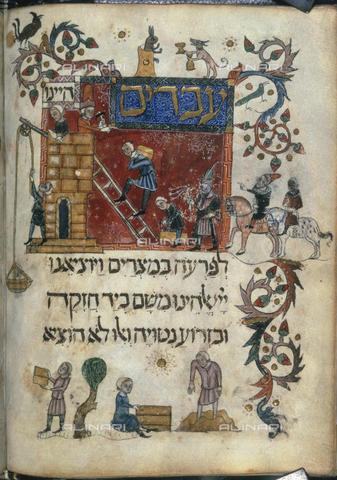 עבדים
היינו
לפרעה במצרים ויוציאנו
ייי אלהינו משם ביד חזקה
ובזרוע נטויה ואלו לא הוציא
ALINARI
ALINARI
ALINARI
ALINARI